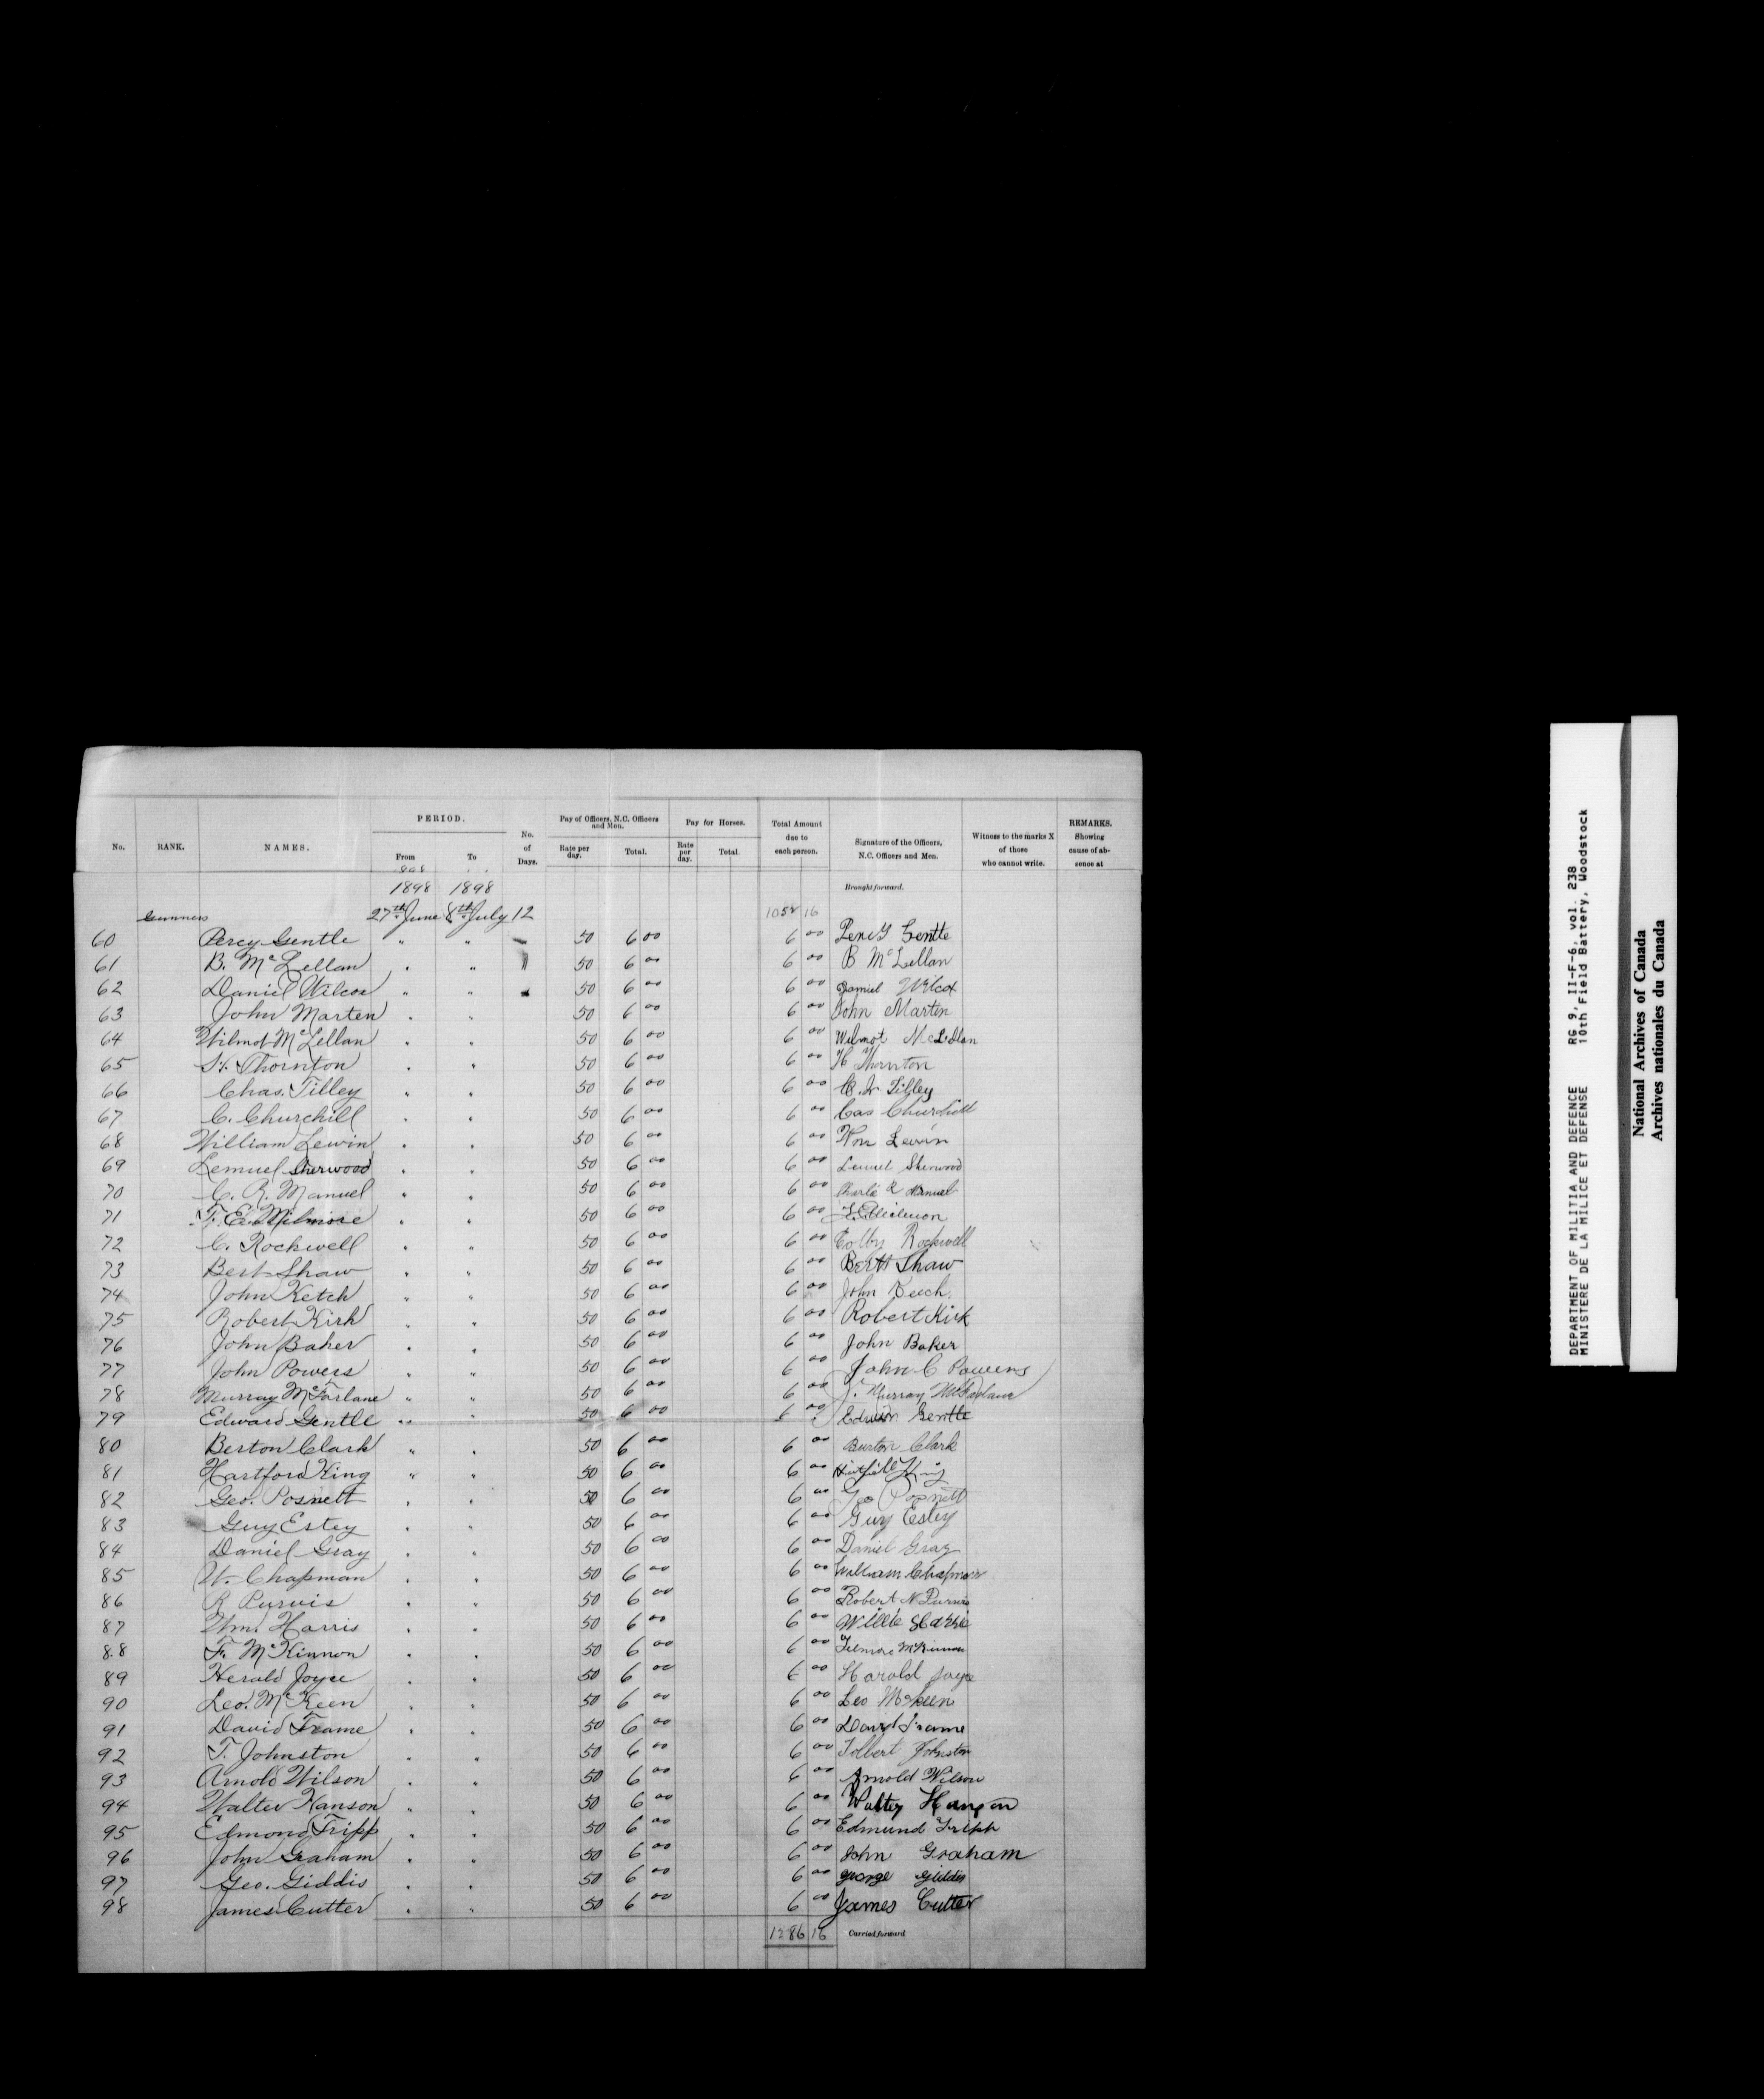 No. RANK. NAMES. PERIOD. From To No. of Days. Pay of Officers, N.C. Officers and Men. Rate per day. Total. Pay for Horses. Rate per day. Total. Total Amount due to each person. Signature of the Officers, N.C. Officers and Men. Witness to the marks X of those who cannot write. REMARKS. Showing cause of absence at
1898 1898 Brought forward.
Gunners 27th June 8th July 12 1058 16
60 Percy Gentle " " 50 6 00 6 00 Percy Gentle
61 B. McLellan " " 50 6 00 6 00 B McLellan
62 Daniel Wilcox " " 50 6 00 6 00 Daniel Wilcox
63 John Marten " " 50 6 00 6 00 John Martin
64 Wilmot McLellan " " 50 6 00 6 00 Wilmot McLellan
65 H. Thornton " " 50 6 00 6 00 H Thornton
66 Chas. Tilley " " 50 6 00 6 00 Tilley
67 C. Churchill " " 50 6 00 6 00 Cas Churchill
68 William Lewin " " 50 6 00 6 00 Wm Lewin
69 Lemuel Sherwood " " 50 6 00 6 00 Lemuel Sherwood
70 C. R. Manuel " " 50 6 00 6 00 Charlie R Manuel
71 F. E. Milmore " " 50 6 00 6 00
72 C. Rockwell " " 50 6 00 6 00 Colby Rockwell
73 Bert Shaw " " 50 6 00 6 00 Bertt Shaw
74 John Ketch " " 50 6 00 6 00 John Keech.
75 Robert Kirk " " 50 6 00 6 00 Robert Kirk
76 John Baker " " 50 6 00 6 00 John Baker
77 John Powers " " 50 6 00 6 00 John C Powers
78 Murray McFarlane " " 50 6 00 6 00 J. Murray McFarlane
79 Edward Gentle " " 50 6 00 6 00 Edwin Gentle
80 Berton Clark " " 50 6 00 6 00 Burton Clark
81 Hartford King " " 50 6 00 6 00 King
82 Geo. Posnett " " 50 6 00 6 00 Geo Posnett
83 Guy Estey " " 50 6 00 6 00 Guy Estey
84 Daniel Gray " " 50 6 00 6 00 Daniel Gray
85 W. Chapman " " 50 6 00 6 00 William Chapman
86 R Purvis " " 50 6 00 6 00 Robert N Purvis
87 Wm. Harris " " 50 6 00 6 00 Willie Harris
88 F. McKinnon " " 50 6 00 6 00 Filmore McKinnon
89 Herald Joyce " " 50 6 00 6 00 Harold Joyce
90 Leo. McKeen " " 50 6 00 6 00 Leo McKeen
91 David Frame " " 50 6 00 6 00 David Frame
92 T. Johnston " " 50 6 00 6 00 Tolbert Johnston
93 Arnold Wilson " " 50 6 00 6 00 Arnold Wilson
94 Walter Hanson " " 50 6 00 6 00 Walter Hanson
95 Edmond Tripp " " 50 6 00 6 00 Edmund Tripp
96 John Graham " " 50 6 00 6 00 John Graham
97 Geo. Giddis " " 50 6 00 6 00 George Giddis
98 James Cutter " " 50 6 00 6 00 James Cutter
1286 16 Carried forward
DEPARTMENT OF MILITIA AND DEFENCE RG 9, II-F-6, vol. 238
MINISTERE DE LA MILICE ET DEFENSE 10th Field Battery, Woodstock
National Archives of Canada
Archives nationales du Canada